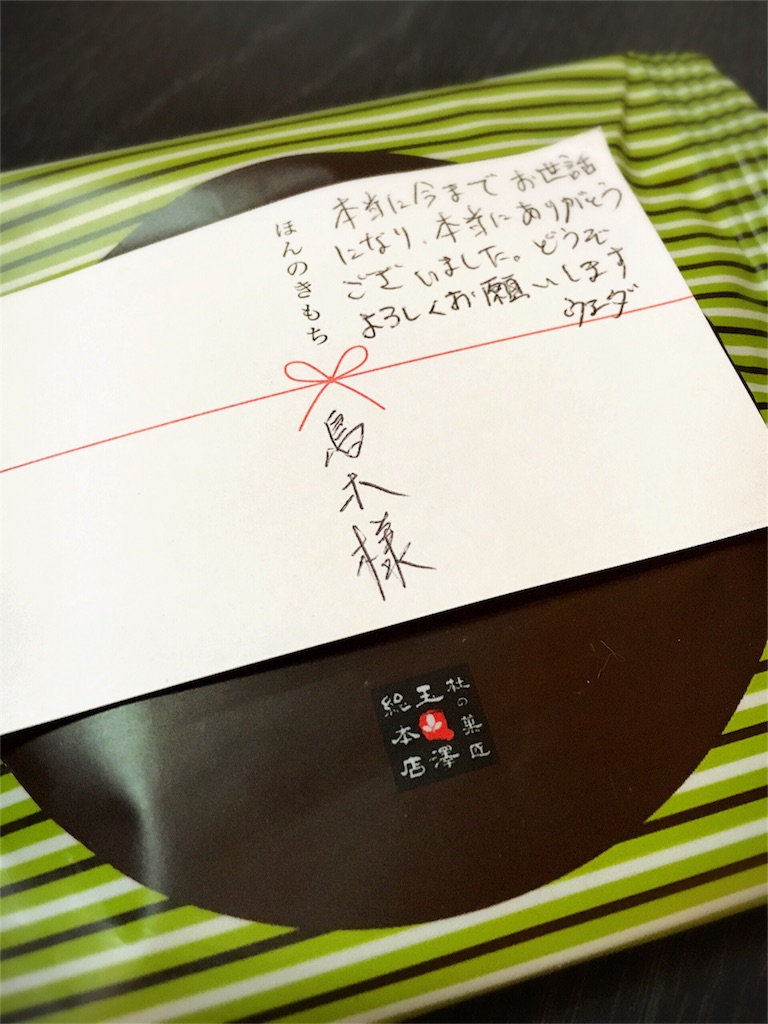 本当に今まで お世話
になり、本当にありがとう
ございました。どうぞ
よろしくお願いします
ウエダ
ほんのきもち
鳥木様
杜の菓匠
玉澤
総本店